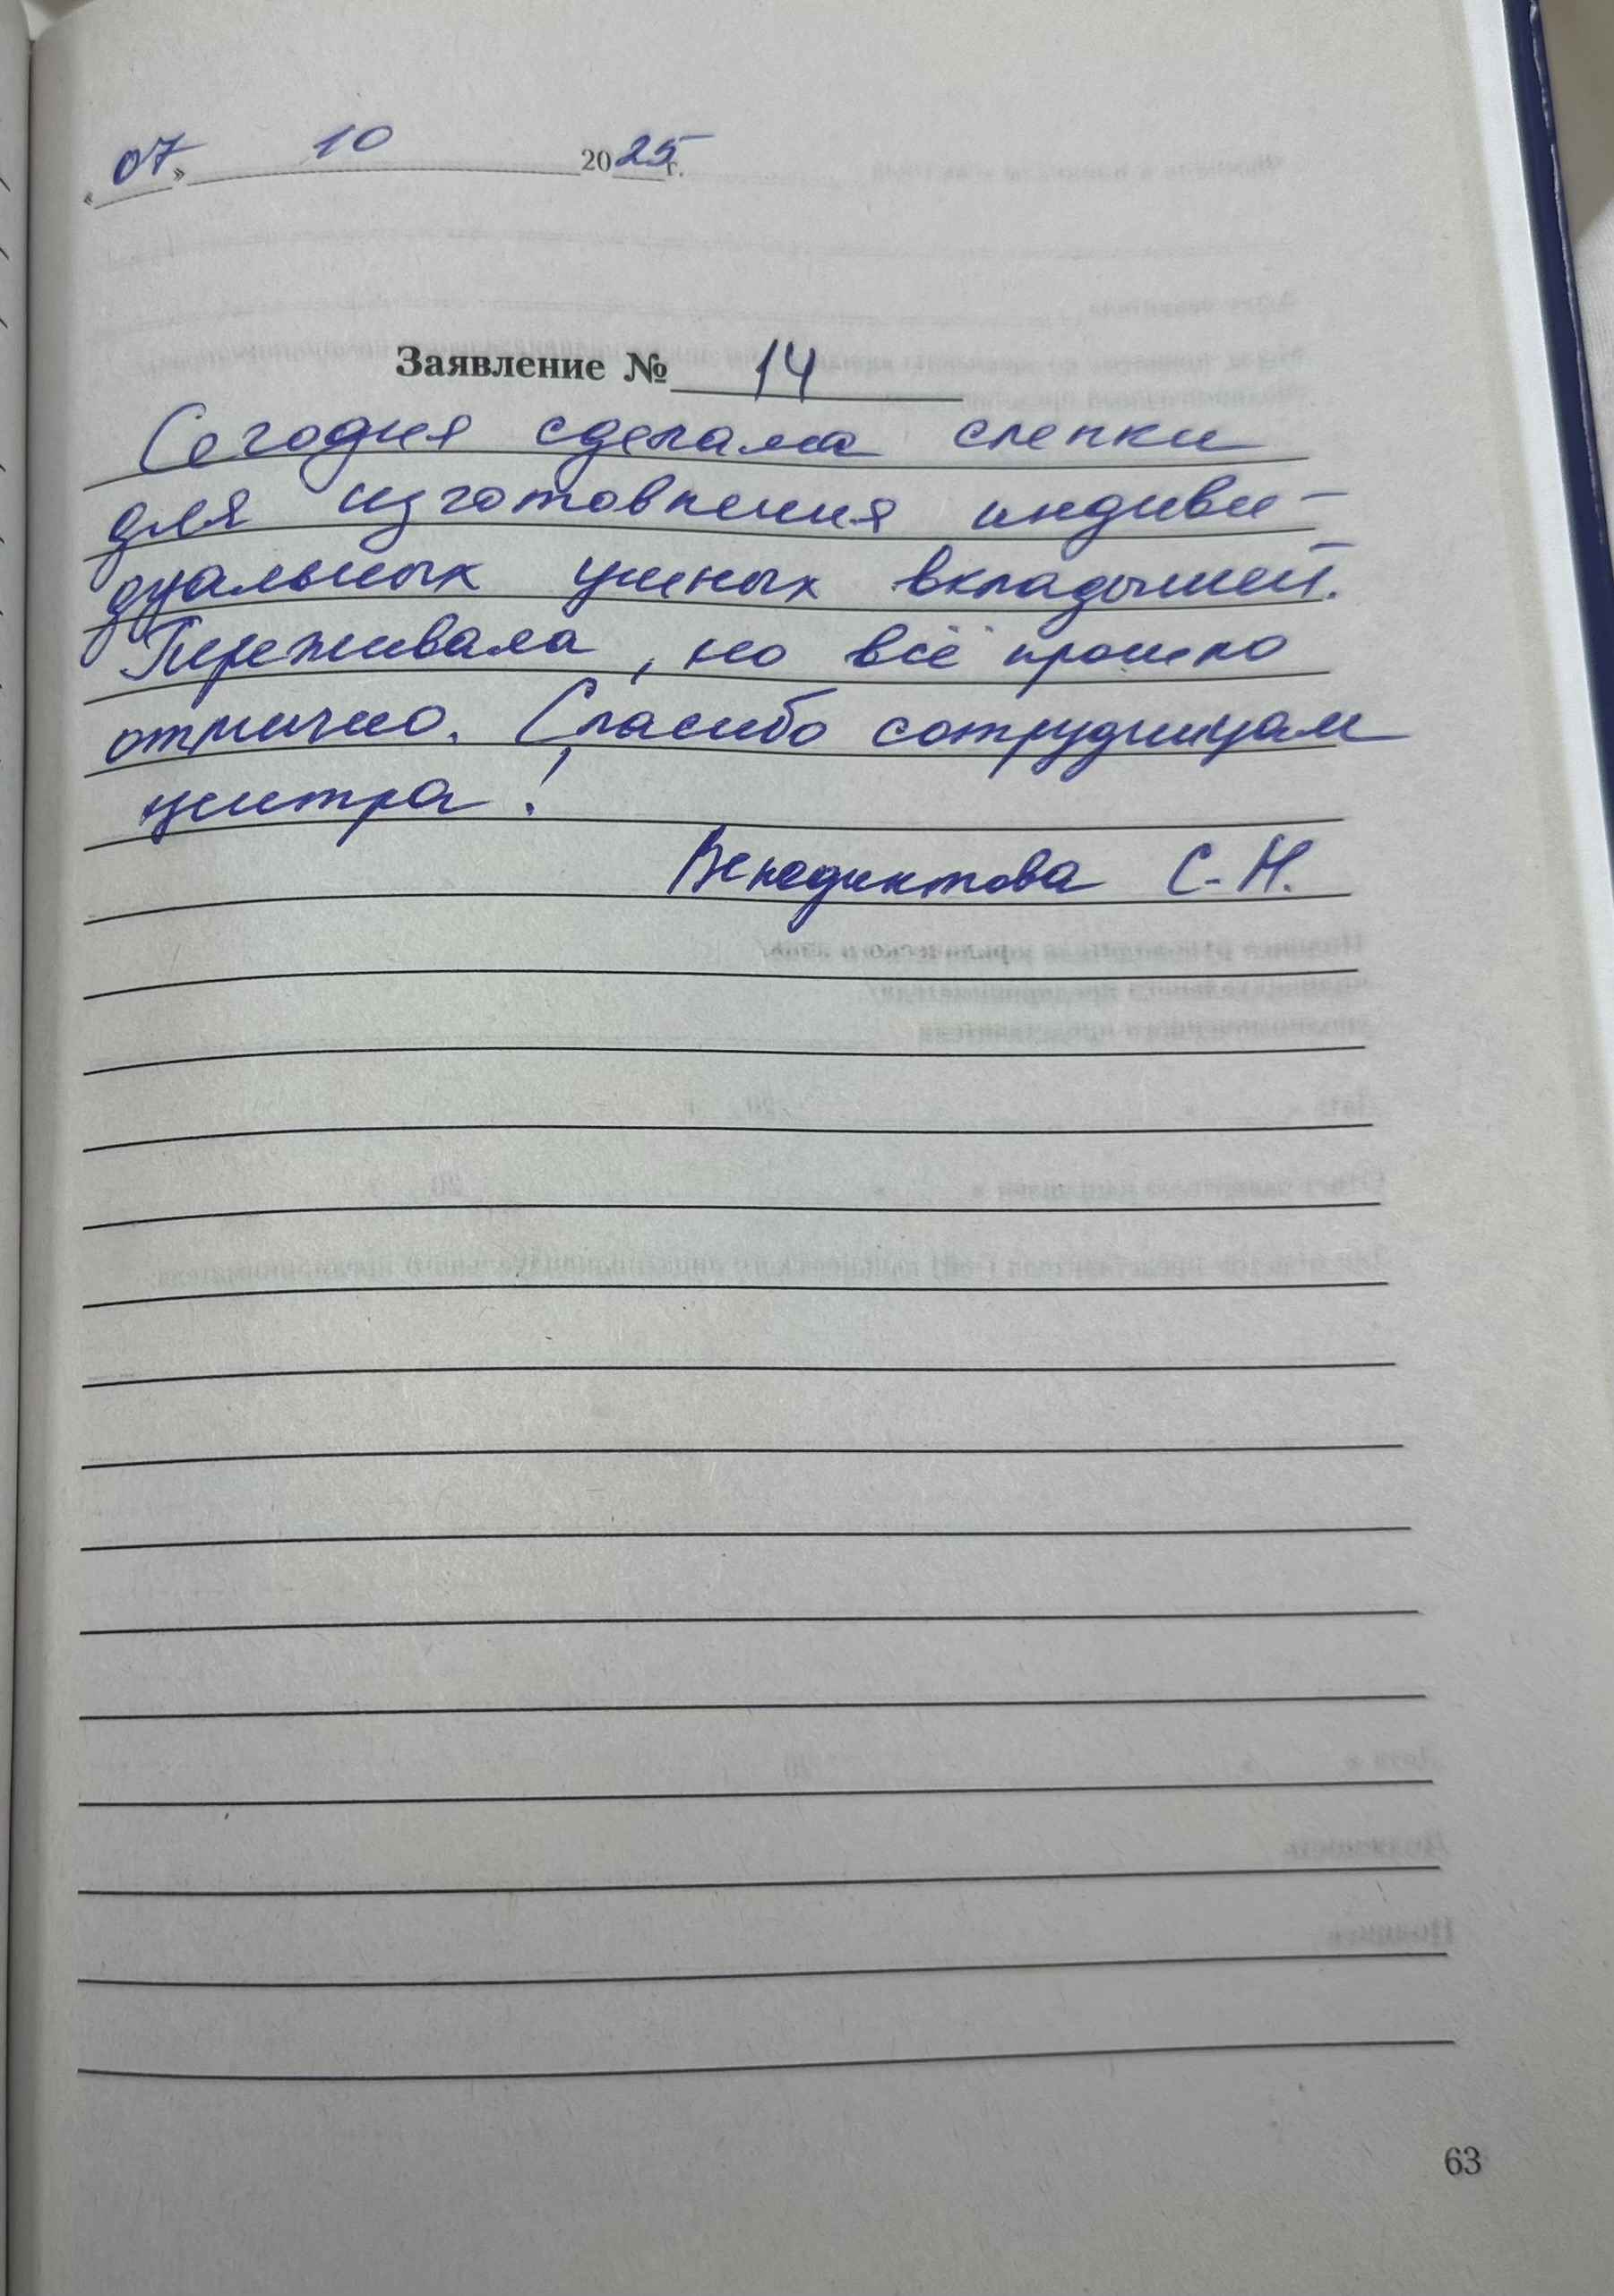 «07» 10 2025г.
Заявление № 14
Сегодня сделала слепки
для изготовления индиви-
дуальных ушных вкладышей.
Переживала, но всё прошло
отлично. Спасибо сотрудницам
центра!
Венедиктова С.Н.
63